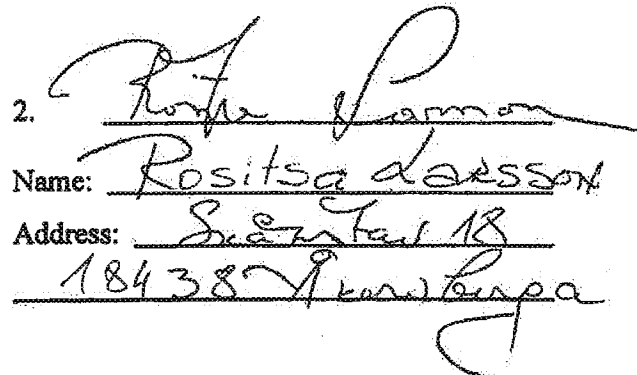 2.
Name: Rositsa Larsson
Address: 18
18438 Åkersberga